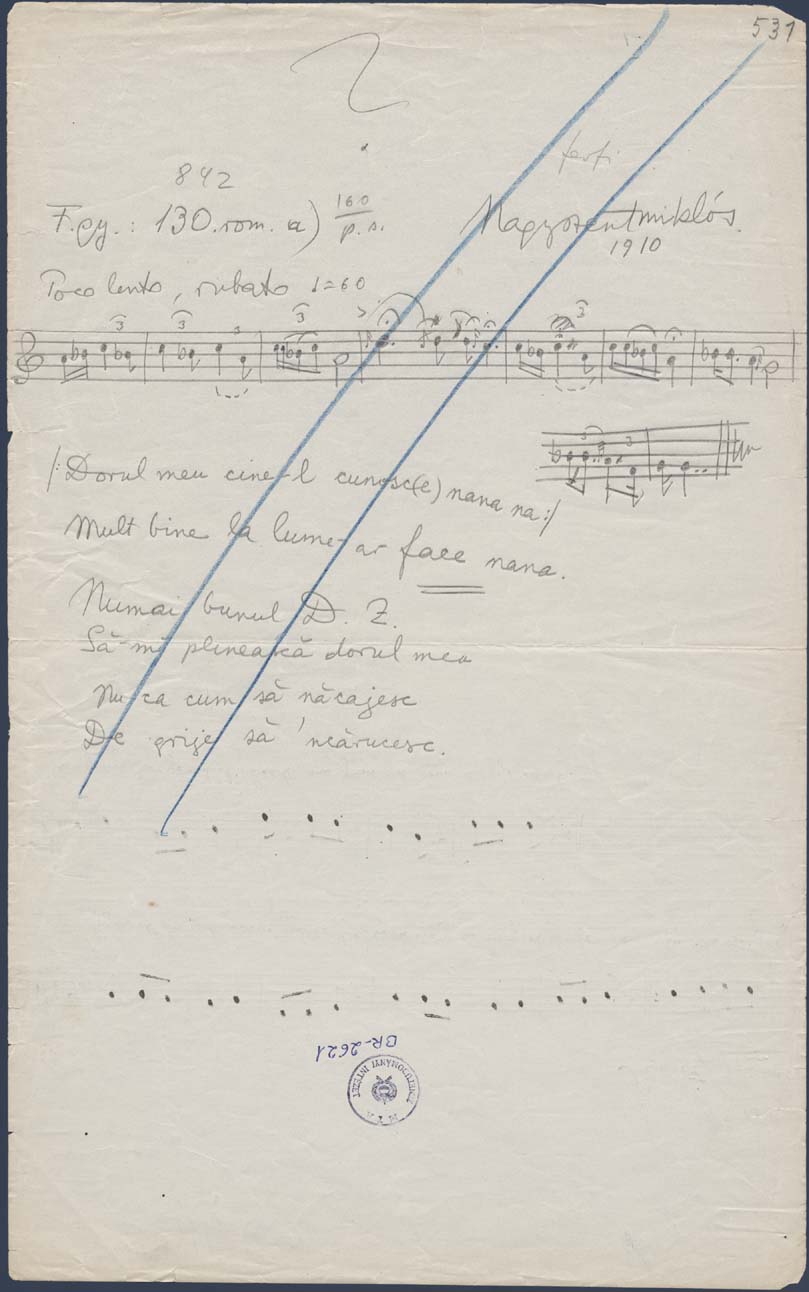 531
842
F.gy.: 130.rom. a) 160/p.s.
férfi
Nagyszentmiklós.
1910
Poco lento, rubato ♩=60
3 3 3 3
3 3
/: Dorul meu cine-l cunosc(e) nana na :/
Mult bine la lume-ar face nana.
Numai bunul D. Z.
Să-mi plinească dorul meu
Nu ca cum să năcajesc
De grije să 'ncărucesc.
BR-2621